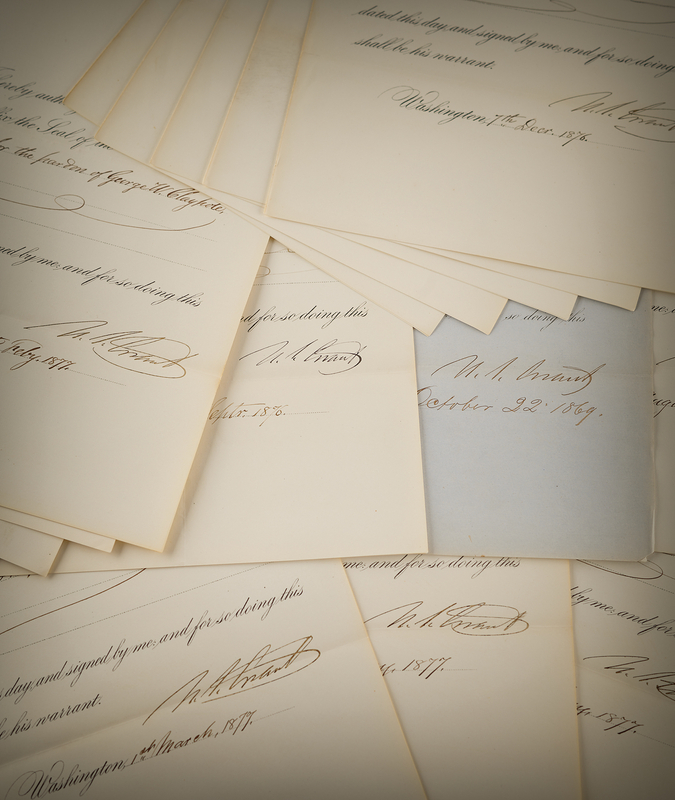 dated this day, and signed by me, and for so doing
shall be his warrant.
U.S. Grant
Washington, 7th Decr. 1876.
the Seal of
the pardon of George W. Claypole,
signed by me, and for so doing this
U.S. Grant
Feby. 1877.
and for so doing this
U.S. Grant
1876.
so doing this
U.S. Grant
October 22d 1869.
day, and signed by me, and for so doing this
his warrant.
U.S. Grant
Washington, 1st March, 1877.
me, and for so doing this
U.S. Grant
1877.
by me, and for
1877.